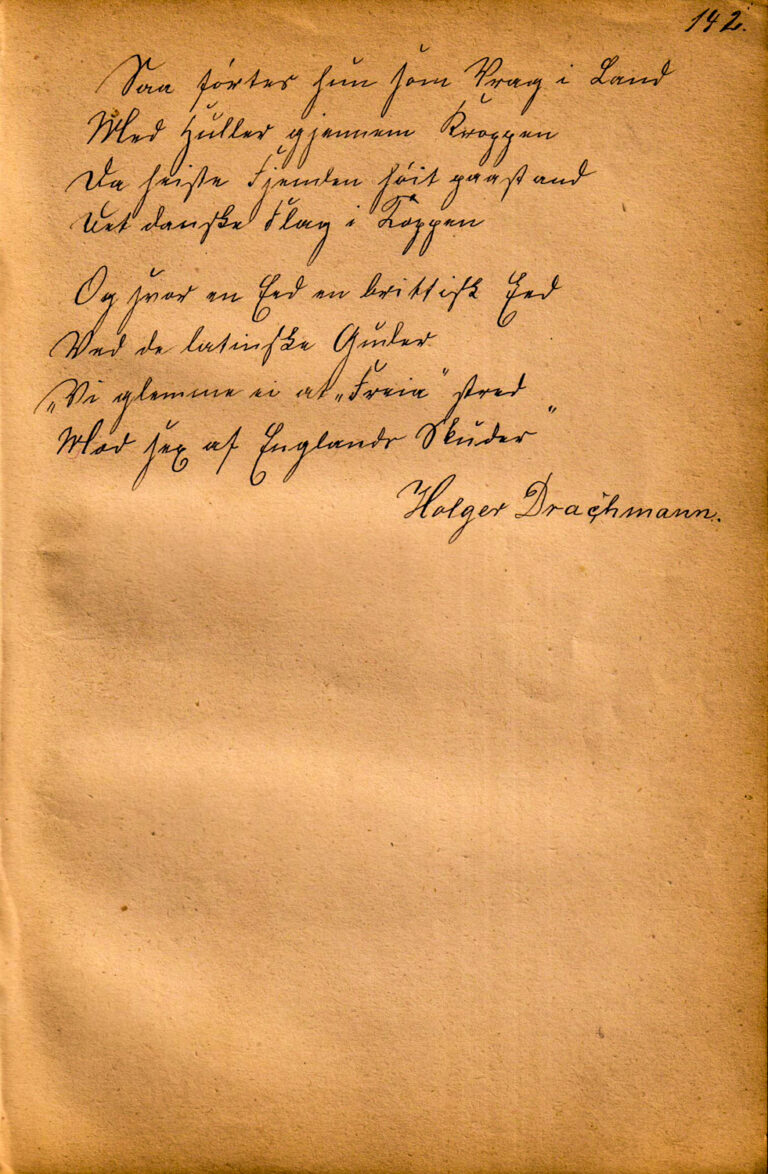 142.
Saa førtes hun som Vrag i Land
Med Huller gjennem Kroppen
Da heiste Fjenden høit paastand
Det danske Flag i Toppen
Og svor en Eed en brittisk Eed
Ved de latinske Guder
„Vi glemme ei at „Freia" stred
Mod sex af Englands Skuder"
Holger Drachmann.